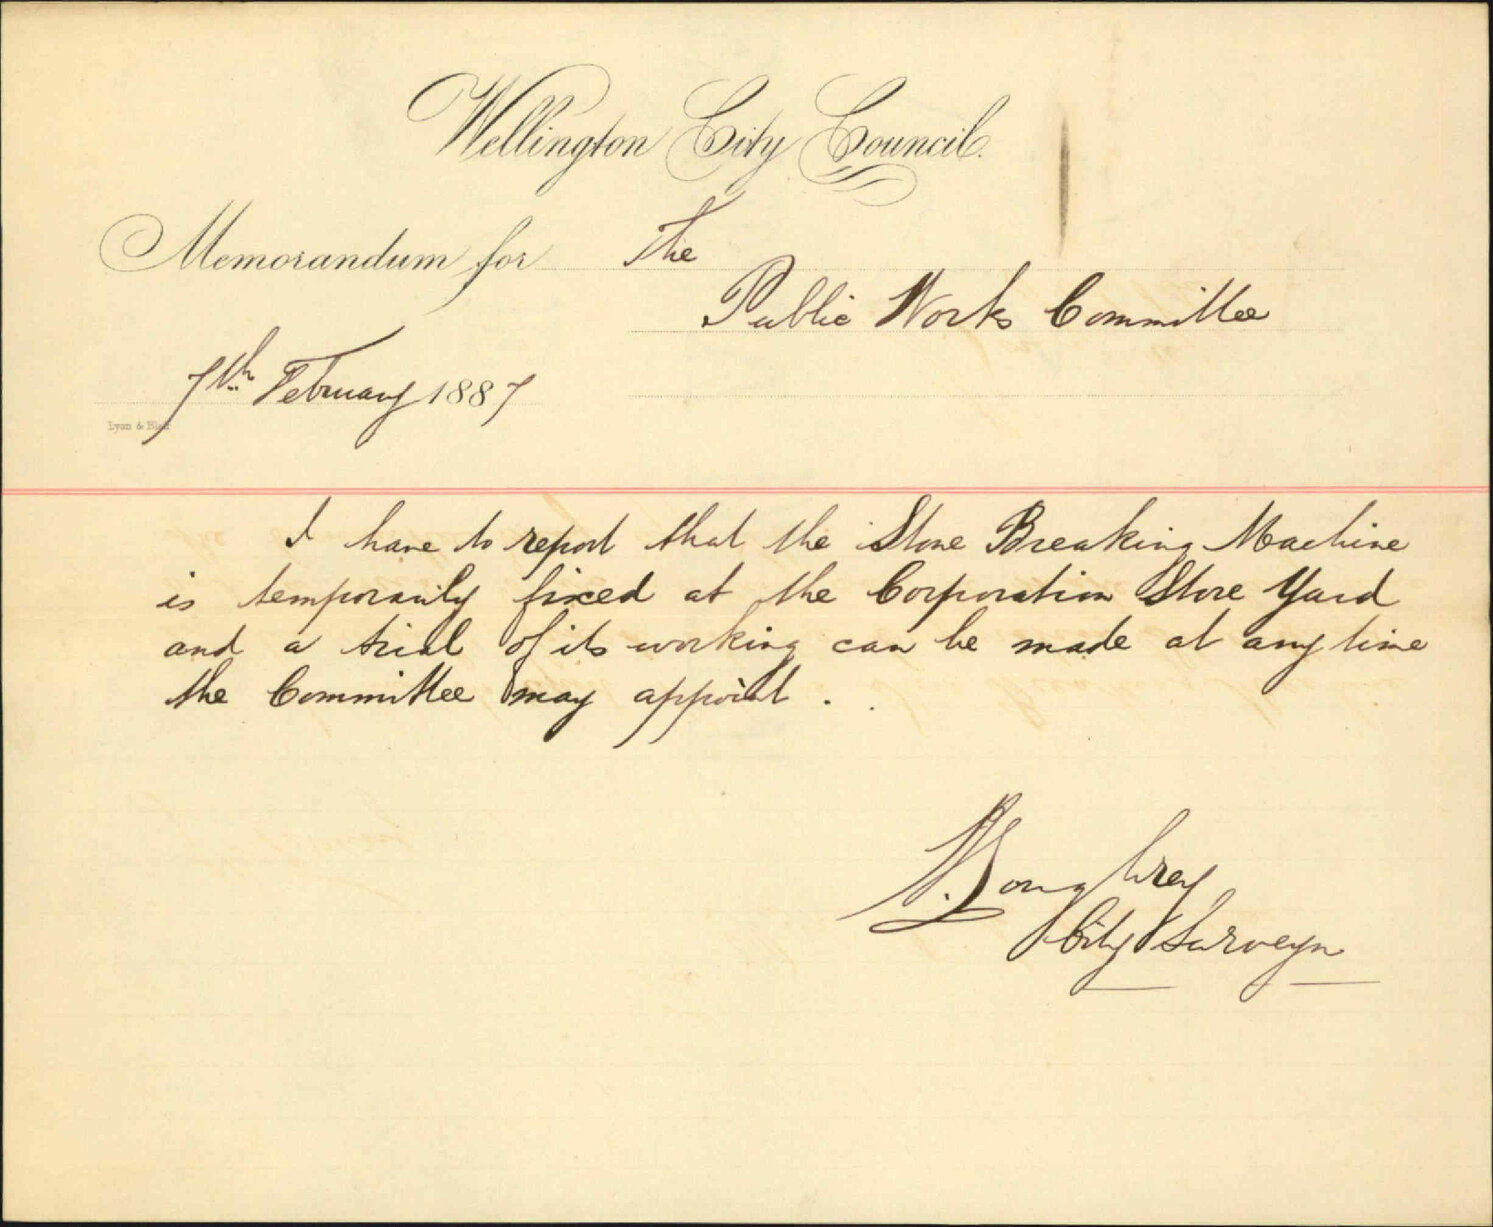 Wellington City Council.
Memorandum for The
Public Works Committee
7th February 1887
Lyon & Blair
I have to report that the Stone Breaking Machine
is temporarily fixed at the Corporation Store Yard
and a trial of its working can be made at any time
the Committee may appoint.
Loughrey
City Surveyor